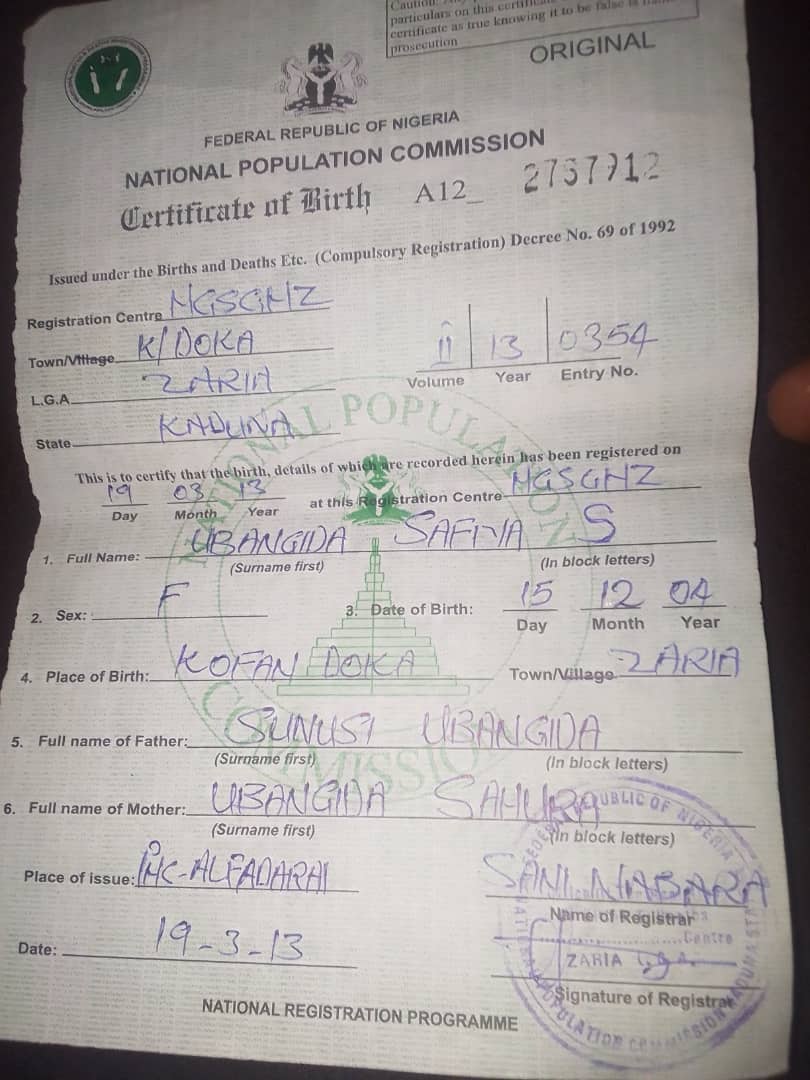 Caution:
particulars on this
certificate as true knowing it to be false is
prosecution
ORIGINAL
FEDERAL REPUBLIC OF NIGERIA
NATIONAL POPULATION COMMISSION
Certificate of Birth A12_ 2737712
Issued under the Births and Deaths Etc. (Compulsory Registration) Decree No. 69 of 1992
Registration Centre MGSGHZ
Town/Village K/DOKA
L.G.A ZARIA
State KADUNA
II 13 0354
Volume Year Entry No.
This is to certify that the birth, details of which are recorded herein has been registered on
19 03 13 at this Registration Centre MGSGHZ
Day Month Year
1. Full Name: UBANGIDA SAFIYA S
(Surname first) (In block letters)
2. Sex: F 3. Date of Birth: 15 12 04
Day Month Year
4. Place of Birth: KOFAN DOKA Town/Village ZARIA
5. Full name of Father: SUNUSI UBANGIDA
(Surname first) (In block letters)
6. Full name of Mother: UBANGIDA SAHURA
(Surname first) (In block letters)
Place of issue: ALFADARAI
SANI
Name of Registrar
Centre
ZARIA
Date: 19-3-13
Signature of Registrar
NATIONAL REGISTRATION PROGRAMME
NATIONAL POPULATION COMMISSION